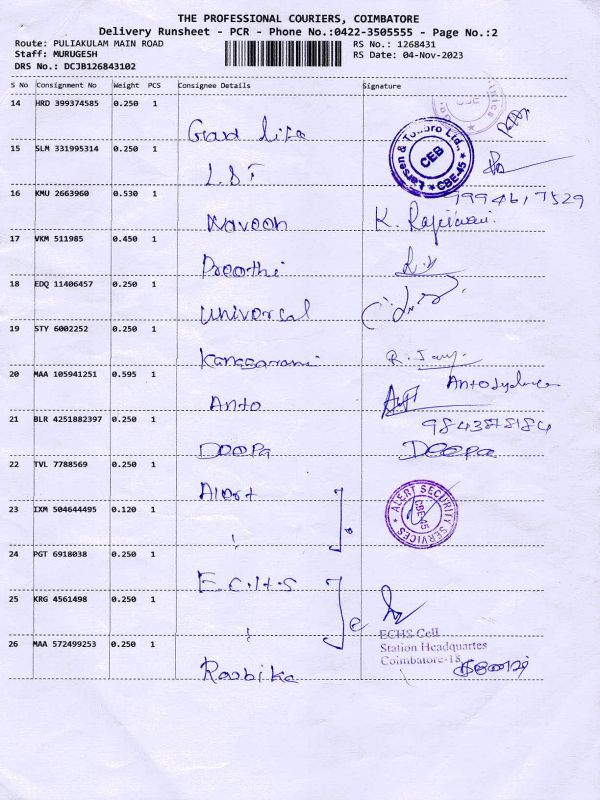 THE PROFESSIONAL COURIERS, COIMBATORE
Delivery Runsheet - PCR - Phone No.:0422-3505555 - Page No.:2
Route: PULIAKULAM MAIN ROAD
Staff: MURUGESH
DRS No.: DCJB126843102
RS No.: 1268431
RS Date: 04-Nov-2023
S No Consignment No Weight PCS Consignee Details Signature
14 HRD 399374585 0.250 1
Good Life
15 SLM 331995314 0.250 1
L&T
Larsen & Toubro Ltd., CEB CBE-45
16 KMU 2663960 0.530 1
Naveen
K.
17 VKM 511985 0.450 1
Preethi
18 EDQ 11406457 0.250 1
Universal
19 STY 6002252 0.250 1
20 MAA 105941251 0.595 1
Anto
21 BLR 4251882397 0.250 1
Deepa Deepa
22 TVL 7788569 0.250 1
Alert
ALERT SECURITY SERVICES CBE-45
23 IXM 504644495 0.120 1
24 PGT 6918038 0.250 1
E.C.H.S
25 KRG 4561498 0.250 1
ECHS Cell
Station Headquartes
Coimbatore-18
26 MAA 572499253 0.250 1